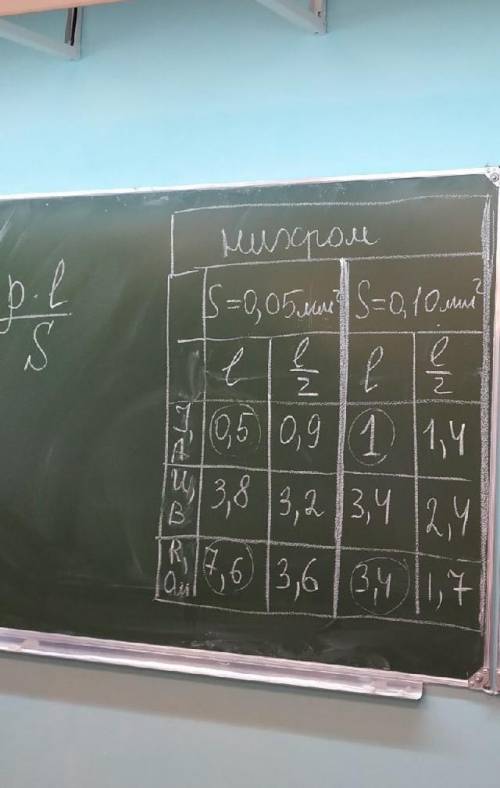 ρ·l
S
нихром
S=0,05мм² S=0,10мм²
l l/2 l l/2
I, A 0,5 0,9 1 1,4
U, B 3,8 3,2 3,4 2,4
R, Ом 7,6 3,6 3,4 1,7